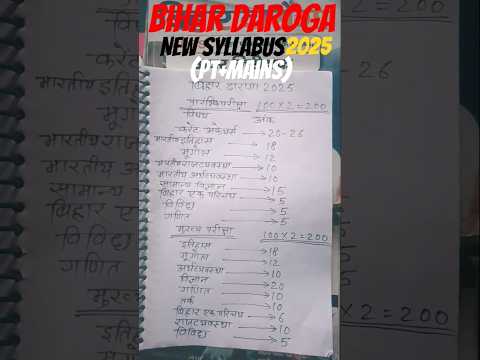 BIHAR DAROGA
NEW SYLLABUS 2025
(PT+MAINS)
बिहार दारोगा 2025
प्रारंभिक परीक्षा 100×2=200
विषय अंक
करेंट अफेयर्स → 20-26
भारतीय इतिहास → 18
भूगोल → 12
भारतीय राजव्यवस्था → 10
भारतीय अर्थव्यवस्था → 10
सामान्य विज्ञान → 15
बिहार एक परिचय → 5
विविध → 5
गणित → 5
मुख्य परीक्षा 100×2=200
इतिहास → 18
भूगोल → 12
अर्थव्यवस्था → 10
विज्ञान → 20
गणित → 10
तर्क → 10
बिहार एक परिचय → 6
राजव्यवस्था → 10
विविध → 5